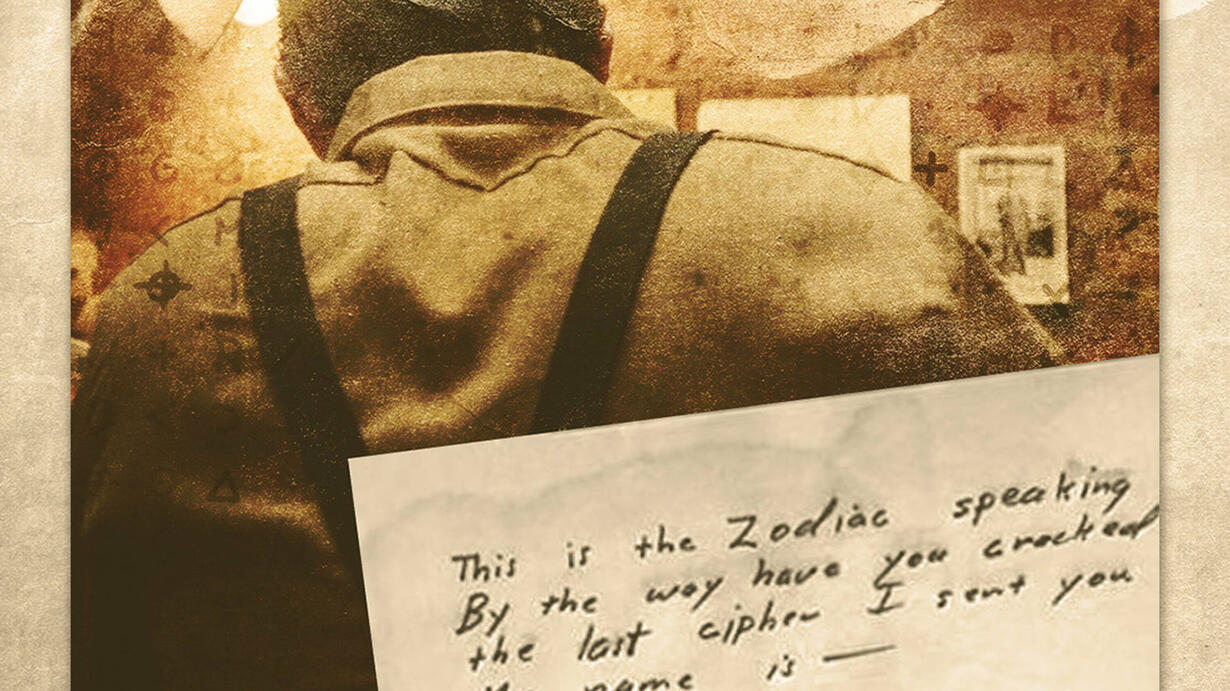 This is the Zodiac speaking
By the way have you cracked
the last cipher I sent you
name is —